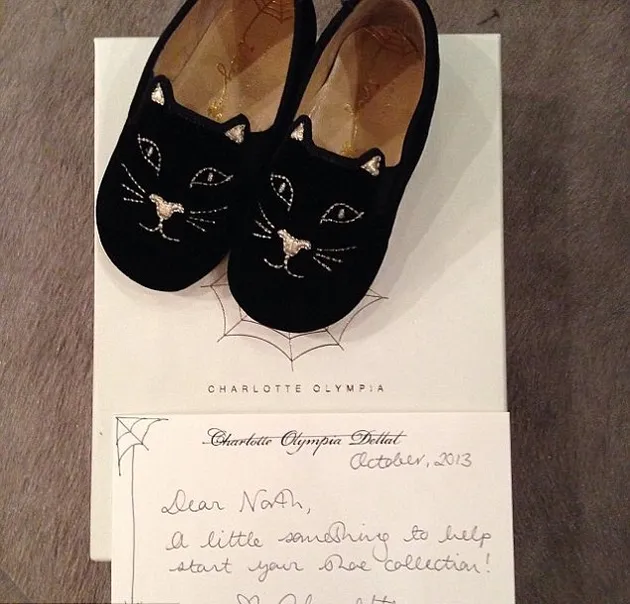 CHARLOTTE OLYMPIA
Charlotte Olympia Dellal
October, 2013
Dear North,
A little something to help
start your shoe collection!